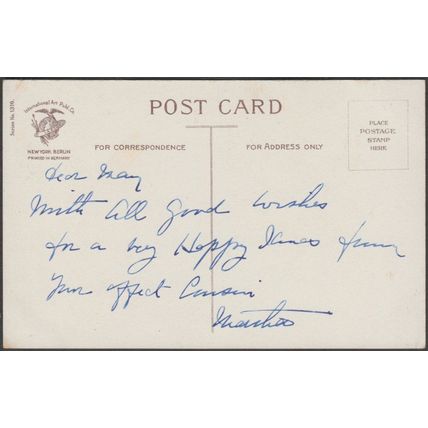 International Art Publ. Co.
Series No. 1310.
NEW YORK. BERLIN
PRINTED IN GERMANY
POST CARD
FOR CORRESPONDENCE
FOR ADDRESS ONLY
PLACE
POSTAGE
STAMP
HERE
Dear May
With All Good Wishes
for a very Happy Xmas from
Your Affect Cousin
Martha